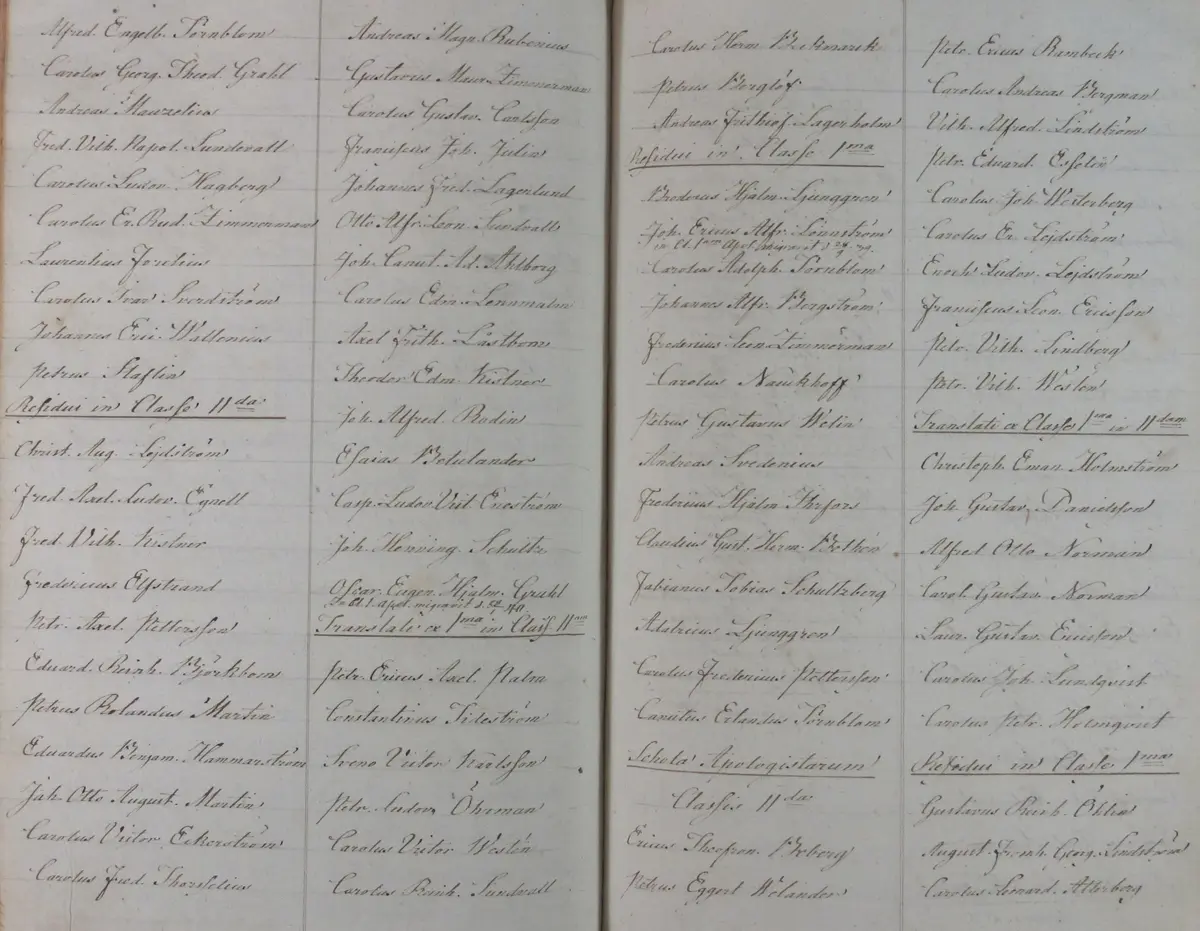 Alfred. Engelb. Törnblom
Carolus Georg. Theod. Grahl
Andreas Mauzelius
Fred. Vilh. Napol. Sundvall
Carolus Ludov. Hagberg
Carolus Er. Rud. Zimmerman
Laurentius Forelius
Carolus Ivar Sverdström
Johannes Eric. Wallonius
Petrus Staflin
Residui in Classe IIda
Christ. Aug. Lejdström
Fred. Axel. Ludov. Egnell
Fred. Vilh. Kistner
Fredericus Elfstrand
Petr. Axel. Pettersson
Eduard. Reinh. Björkbom
Petrus Rolandus Martin
Eduardus Benjam. Hammarström
Joh. Otto August. Martin
Carolus Victor Eckerström
Carolus Fred. Thorselius
Andreas Magn. Rubenius
Gustavus Maur. Zimmerman
Carolus Gustav. Carlsson
Franciscus Joh. Julin
Johannes Fred. Lagerlund
Otto Alfr. Leon. Sundvall
Joh. Canut. Ad. Ahlborg
Carolus Edv. Lennmalm
Axel Frith. Låstbom
Theodor Edm. Kistner
Joh. Alfred. Rodin
Esaias Betulander
Casp. Ludov. Vict. Eneström
Joh. Henning. Schultz
Oscar. Eugen. Hjalm. Grahl
in Cl. 1. Apol. migravit d.
Translati ex 1ma in Class. IIam
Petr. Ericus Axel. Palm
Constantinus Tideström
Sveno Victor Karlsson
Petr. Ludov. Öhrman
Carolus Victor Westén
Carolus Reinh. Sundvall
Carolus Herm. Beckmarck
Petrus Berglöf
Andreas Frithiof Lagerholm
Residui in Classe 1ma
Fredericus Hjalm. Ljunggren
Joh. Ericus Alfr. Lönnström
in Cl. 1am Apol. migravit d.
Carolus Adolph. Törnblom
Johannes Alfr. Bergström
Fredericus Leon. Zimmerman
Carolus Nauckhoff
Petrus Gustavus Welin
Andreas Svedenius
Fredericus Hjalm. Ihrfors
Claudius Gust. Herm. Bothén
Fabianus Tobias Schultzberg
Adalricus Ljunggren
Carolus Fredericus Pettersson
Canutus Erlandus Törnblom
Schola Apologistarum
Classis IIda
Ericus Theofron. Boberg
Petrus Eggert Welander
Petr. Ericus Rambeck
Carolus Andreas Bergman
Vilh. Alfred. Lindström
Petr. Eduard. Esselin
Carolus Joh. Westerberg
Carolus Er. Lejdström
Enoch Ludov. Lejdström
Franciscus Leon. Ericsson
Petr. Vilh. Lindberg
Petr. Vilh. Westén
Translati ex Classe 1ma in IIdam
Christoph. Eman. Holmström
Joh. Gustav. Danielsson
Alfred Otto Norman
Carol. Gustav. Norman
Laur. Gustav. Ericsson
Carolus Joh. Lundqvist
Carolus Petr. Holmqvist
Residui in Classe 1ma
Gustavus Reinh. Öhlin
August. Georg. Lindström
Carolus Leonard. Atterberg